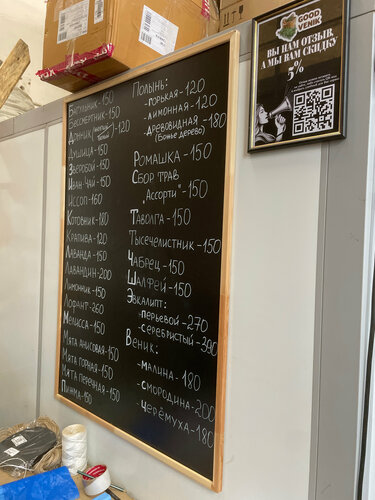 Багульник-150
Бессмертник-150
Донник (желтый белый)-120
Душица-150
Зверобой-150
Иван-Чай-150
Иссоп-160
Котовник-180
Крапива-120
Лаванда-150
Лавандин-200
Лимонник-150
Лофант-260
Мелисса-150
Мята анисовая-150
Мята горная-150
Мята перечная-150
Пижма-150
Полынь:
-горькая-120
-лимонная-120
-древовидная-180
(Божье дерево)
Ромашка-150
Сбор трав
„Ассорти"-150
Таволга-150
Тысечелистник-150
Чабрец-150
Шалфей-150
Эвкалипт:
-перьевой-270
-серебристый-390
Веник:
-малина-180
-смородина-200
-черёмуха-180
GOOD
VENIK
ВЫ НАМ ОТЗЫВ,
А МЫ ВАМ СКИДКУ
5%